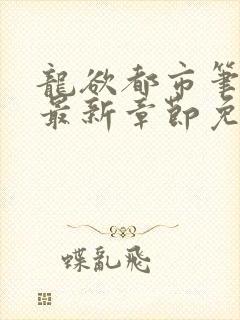 龍欲都市筆
最新章節免
蝶亂飛